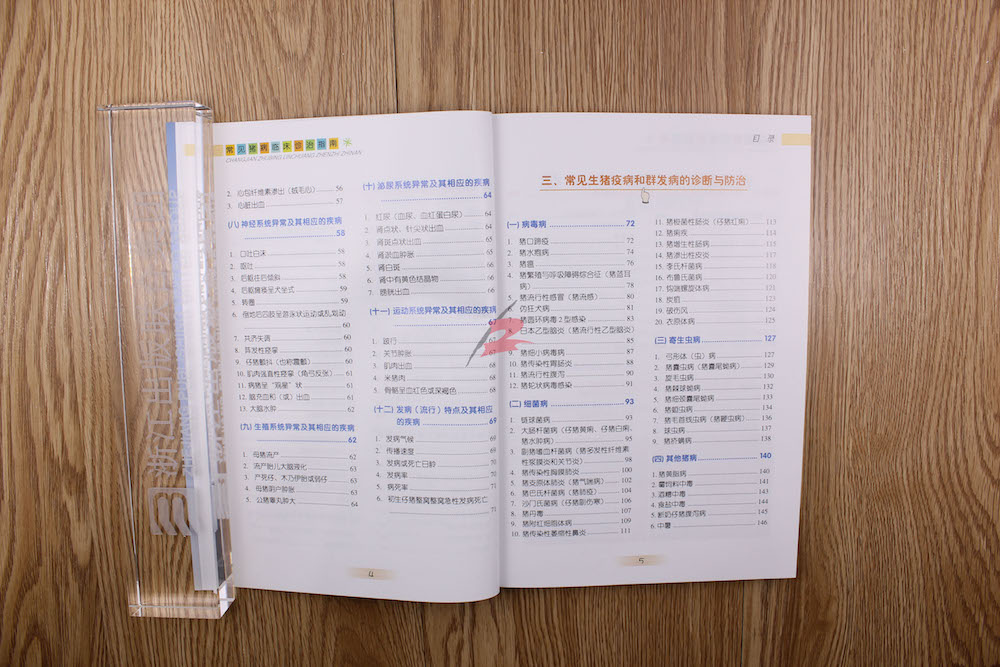 常见猪病临床诊治指南
CHANGJIAN ZHUBING LINCHUANG ZHENZHI ZHINAN
2. 心包纤维素渗出（绒毛心） 56
3. 心脏出血 57
(八) 神经系统异常及其相应的疾病
58
1. 口吐白沫 58
2. 呕吐 58
3. 后躯往后倾斜 58
4. 后躯瘫痪呈犬坐式 59
5. 转圈 59
6. 倒地后四肢呈游泳状运动或乱划动
60
7. 共济失调 60
8. 阵发性痉挛 60
9. 仔猪颤抖（也称震颤） 60
10. 肌肉强直性痉挛（角弓反张） 61
11. 病猪呈“观星”状 61
12. 脑充血和（或）出血 61
13. 大脑水肿 62
(九) 生殖系统异常及其相应的疾病
62
1. 母猪流产 62
2. 流产胎儿大脑液化 63
3. 产死仔、木乃伊胎或弱仔 63
4. 母猪阴户肿胀 63
5. 公猪睾丸肿大 64
(十) 泌尿系统异常及其相应的疾病
64
1. 红尿（血尿、血红蛋白尿） 64
2. 肾点状、针尖状出血 64
3. 肾斑点状出血 65
4. 肾淤血肿胀 65
5. 肾白斑 66
6. 肾中有黄色结晶物 66
7. 膀胱出血 66
(十一) 运动系统异常及其相应的疾病
67
1. 跛行 67
2. 关节肿胀
3. 肌肉出血 68
4. 米猪肉 68
5. 骨骼呈血红色或深褐色 68
(十二) 发病（流行）特点及其相应
的疾病 69
1. 发病气候 69
2. 传播速度 69
3. 发病或死亡日龄 70
4. 发病率 70
5. 病死率 71
6. 初生仔猪整窝整窝急性发病死亡
71
4
目 录
三、常见生猪疫病和群发病的诊断与防治
(一) 病毒病 72
1. 猪口蹄疫 72
2. 猪水疱病 74
3. 猪瘟 76
4. 猪繁殖与呼吸障碍综合征（猪蓝耳
病） 78
5. 猪流行性感冒（猪流感） 80
6. 伪狂犬病 81
7. 猪圆环病毒2型感染 83
8. 日本乙型脑炎（猪流行性乙型脑炎）
85
9. 猪细小病毒病 87
10. 猪传染性胃肠炎 88
11. 猪流行性腹泻 90
12. 猪蛇状病毒感染 91
(二) 细菌病 93
1. 链球菌病 93
2. 大肠杆菌病（仔猪黄痢、仔猪白痢、
猪水肿病） 95
3. 副猪嗜血杆菌病（猪多发性纤维素
性浆膜炎和关节炎） 98
4. 猪传染性胸膜肺炎 100
5. 猪炎原体肺炎（猪气喘病） 102
6. 猪巴氏杆菌病（猪肺疫） 104
7. 沙门氏菌病（仔猪副伤寒） 106
8. 猪丹毒 107
9. 猪附红细胞体病 109
10. 猪传染性萎缩性鼻炎 111
11. 猪梭菌性肠炎（仔猪红痢） 113
12. 猪痢疾 114
13. 猪增生性肠病 115
14. 猪渗出性皮炎 117
15. 李氏杆菌病 118
16. 布鲁氏菌病 120
17. 钩端螺旋体病 121
18. 炭疽 123
19. 破伤风 124
20. 衣原体病 125
(三) 寄生虫病 127
1. 弓形体（虫）病 127
2. 猪囊虫病（猪囊尾蚴病） 129
3. 旋毛虫病 130
4. 猪棘球蚴病 132
5. 猪细颈囊尾蚴病 133
6. 猪蛔虫病 134
7. 猪毛首线虫病（猪鞭虫病） 136
8. 球虫病 137
9. 猪疥螨病 138
(四) 其他猪病 140
1. 猪黄脂病 140
2. 霉饲料中毒 141
3. 酒糟中毒 143
4. 食盐中毒 144
5. 断奶仔猪腹泻病 145
6. 中暑 146
5